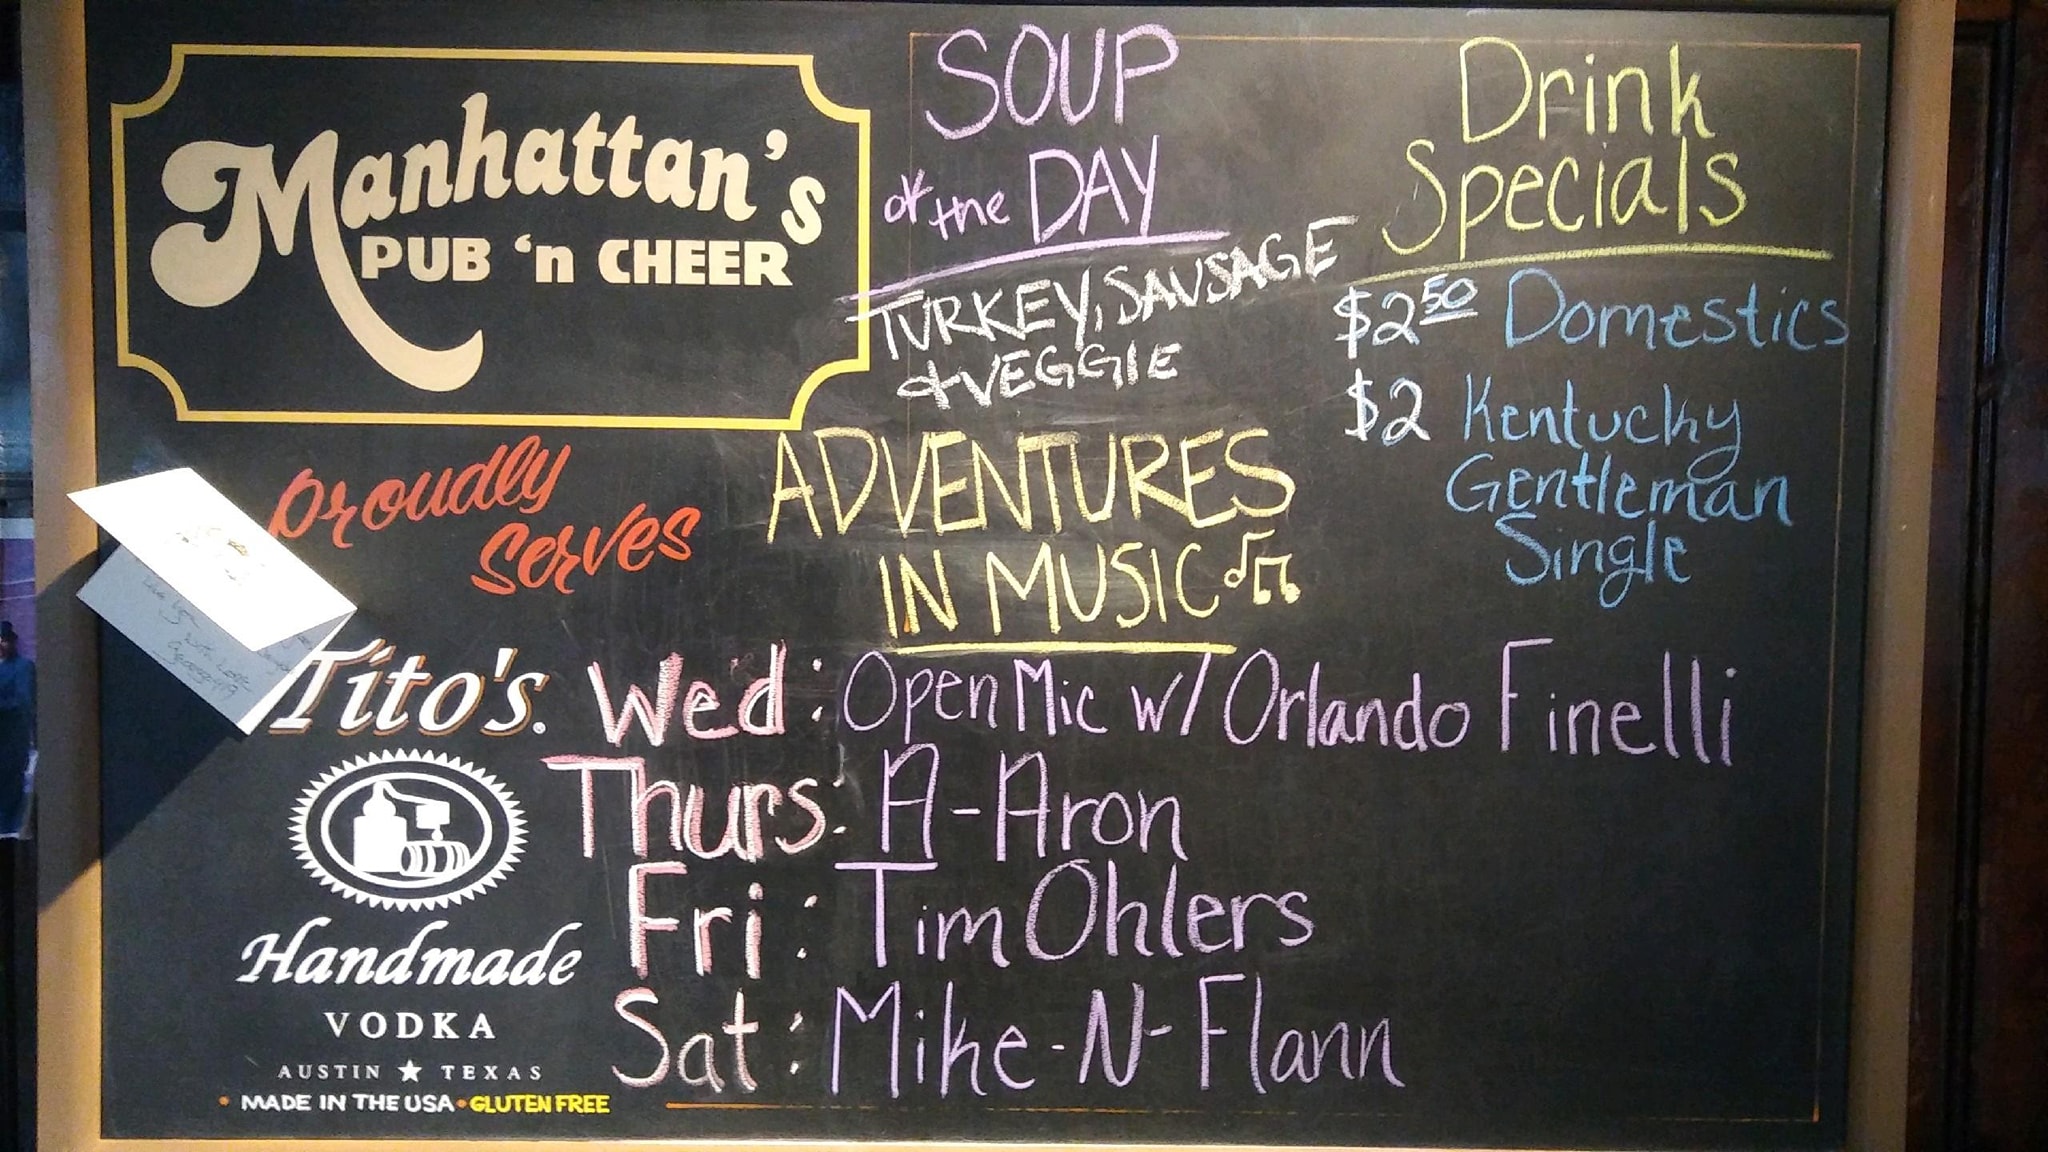 Manhattan's
PUB 'n CHEER
SOUP
of the DAY
TURKEY, SAUSAGE
& VEGGIE
Drink
Specials
$2.50 Domestics
$2 Kentucky
Gentleman
Single
Proudly
Serves
Tito's®
Handmade
VODKA
AUSTIN ★ TEXAS
• MADE IN THE USA • GLUTEN FREE
ADVENTURES
IN MUSIC
Wed: Open Mic w/ Orlando Finelli
Thurs: A-Aron
Fri: Tim Ohlers
Sat: Mike-N-Flann